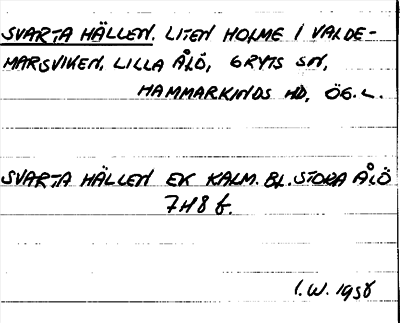 SVARTA HÄLLEN. LITEN HOLME I VALDE-
MARSVIKEN, LILLA ÅLÖ, GRYTS SN,
HAMMARKINDS HD, ÖG. L.
SVARTA HÄLLEN EK KALM. BL. STORA ÅLÖ
7H8f.
I.W. 1958